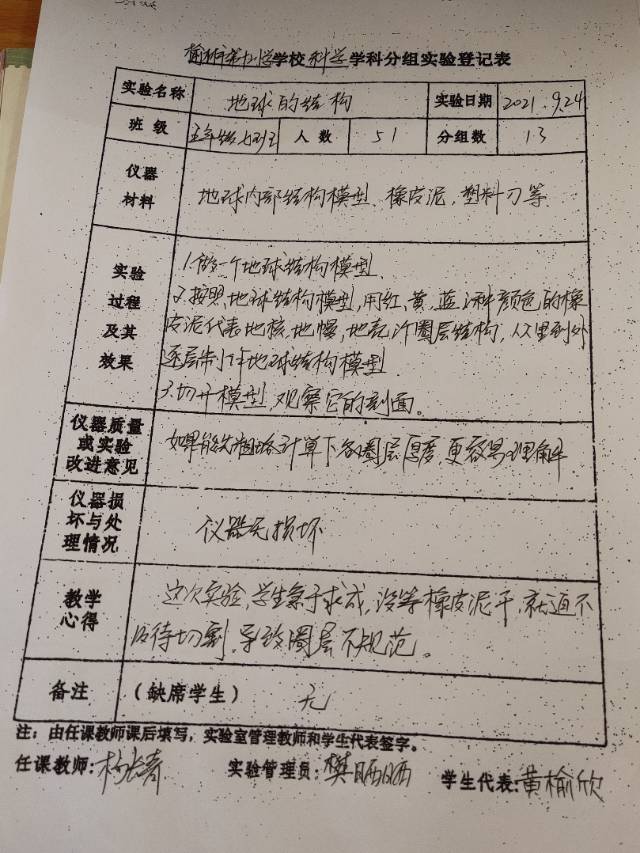 学校科学学科分组实验登记表
实验名称 地球的结构 实验日期 2021.9.24
班级 五年级七班 人数 51 分组数 13
仪器材料 地球内部结构模型、橡皮泥，塑料刀等
实验过程及其效果 1.做一个地球结构模型
2.按照地球结构模型，用红、黄、蓝三种颜色的橡
皮泥代表地核、地幔，地壳三个圈层结构，从里到外
逐层制作地球结构模型
3.切开模型，观察它的剖面。
仪器质量或实验改进意见 如果能粗略计算下各圈层厚度，更容易理解
仪器损坏与处理情况 仪器无损坏
教学心得 这次实验，学生急于求成，没等橡皮泥干，就迫不
及待切割，导致圈层不规范。
备注 （缺席学生） 无
注：由任课教师课后填写，实验室管理教师和学生代表签字。
任课教师： 实验管理员：樊晒晒 学生代表：黄榆欣